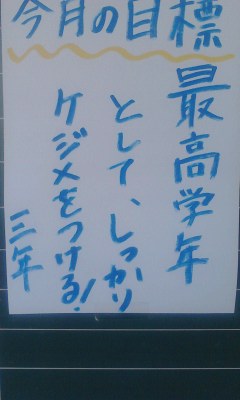 今月の目標
最高学年
として、しっかり
ケジメをつける!
三年